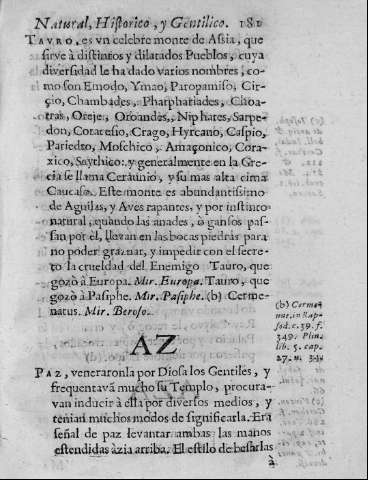 Natural, Historico, y Gentilico. 181
TAVRO, es vn celebre monte de Assia, que
sirve à distintos y dilatados Pueblos, cuya
diversidad le ha dado varios nombres, co-
mo son Emodo, Ymao, Paropamiso, Cir-
çio, Chambades, Pharphariades, Choa-
tras, Oreje, Oroandes, Niphates, Sarpe-
don, Coracesio, Crago, Hyrcano, Caspio,
Pariedro, Moschico, Amaçonico, Cora-
xico, Scythico: y generalmente en la Gre-
cia se llama Ceraunio, y su mas alta cima
Caucaso. Este monte es abundantissimo
de Aguilas, y Aves rapantes, y por instinto
natural, quando las anades, ò gansos pas-
san por èl, llevan en las bocas piedras para
no poder graznar, y impedir con el secre-
to la crueldad del Enemigo Tauro, que
gozò à Europa. Mir. Europa. Tauro, que
gozò à Pasiphe. Mir. Pasiphe. (b) Cerme-
natus. Mir. Beroso.
(b) Cerme-
nat. in Rap-
sod. c. 39. f.
349. Plin.
lib. 5. cap.
27. n.
AZ
PAZ, veneraronla por Diosa los Gentiles, y
frequentavã mucho su Templo, procura-
van inducir à ella por diversos medios, y
tenian muchos modos de significarla. Era
señal de paz levantar ambas las manos
estendidas àzia arriba. El estilo de besarlas
à